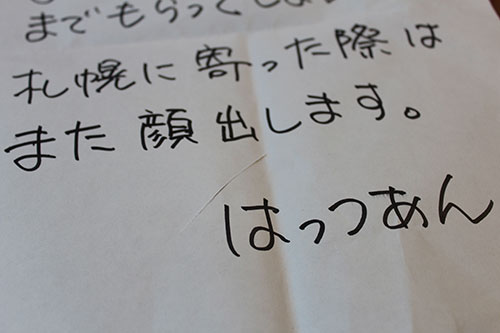 までもらってしま
札幌に寄った際は
また顔出します。
はっつあん